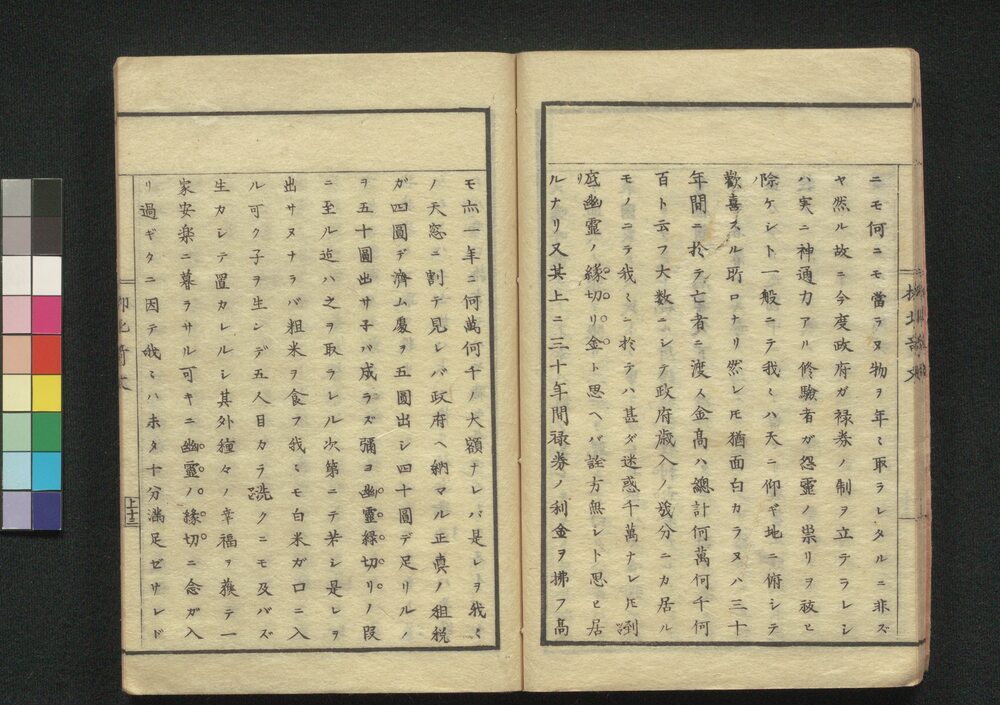 ニモ何ニモ當ラヌ物ヲ年ミ取ラレタルニ非ズ
ヤ然ル故ニ今度政府ガ禄券ノ制ヲ立テラレシ
ハ実ニ神通力アル修驗者ガ怨霊ノ祟リヲ祓ヒ
除ケシト一般ニテ我ミハ天ニ仰ギ地ニ俯シテ
歡喜スル所ロナリ然レ𪜈猶面白カラヌハ三十
年間ニ於テ亡者ニ渡ス金高ハ總計何萬何千何
百ト云フ大数ニシテ政府歳入ノ幾分ニカ居ル
モノニテ我ミニ於テハ甚ダ迷惑千萬ナレ𪜈到
底幽靈ノ縁切リ金ト思ヘバ詮方無シト思ヒ居
ルナリ又其上ニ三十年間禄券ノ利金ヲ拂フ高
モ亦一年ニ何萬何千ノ大額ナレバ是レヲ我ミ
ノ天窓ニ割テ見レバ政府ヘ納マル正眞ノ租税
ガ四圓デ濟ム處ヲ五圓出シ四十圓デ足リルノ
ヲ五十圓出サ子バ成ラズ彌ヨ幽靈縁切リノ段
ニ至ル迄ハ之ヲ取ラレル次第ニテ若シ是レヲ
出サヌナラバ粗米ヲ食フ我ミモ白米ガ口ニ入
ル可ク子ヲ生ンデ五人目カラ洗クニモ及バズ
生カシテ置カレルシ其外種々ノ幸福ヲ獲テ一
家安楽ニ暮ラサル可キニ幽靈ノ縁切ニ念ガ入
リ過ギタニ因テ我ミハ未タ十分満足ゼサレド
上十三